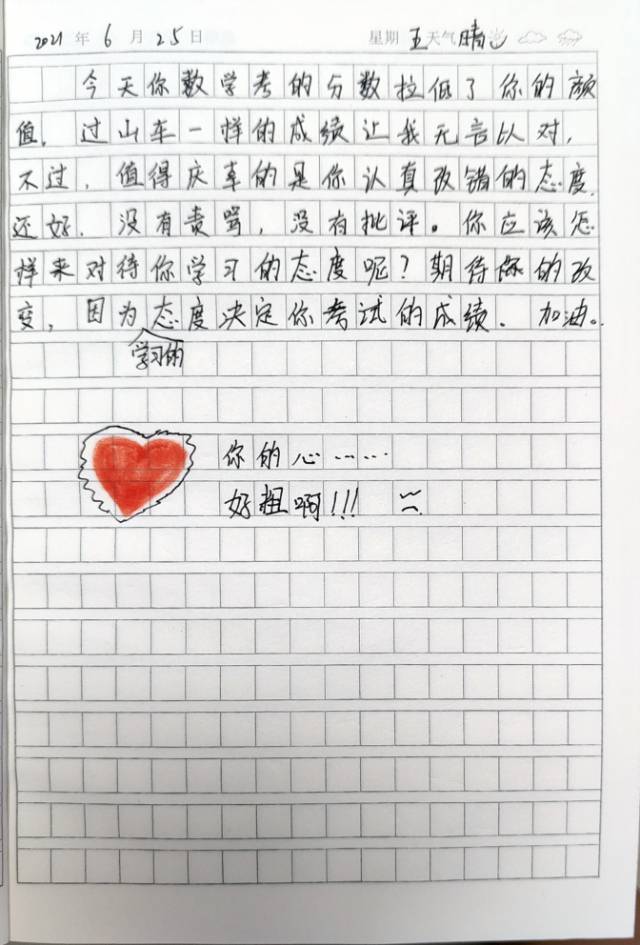 2021 年 6 月 25 日 星期 五 天气 晴
今天你数学考的分数拉低了你的颜
值。过山车一样的成绩让我无言以对,
不过,值得庆幸的是你认真改错的态度
还好.没有责骂,没有批评。你应该怎
样来对待你学习的态度呢?期待你的改
变,因为态度决定你考试的成绩.加油。
学习的
你的心……
好粗啊!!!